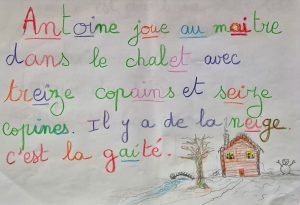 Antoine joue au maitre
dans le chalet avec
treize copains et seize
copines. Il y a de la neige.
c'est la gaité.